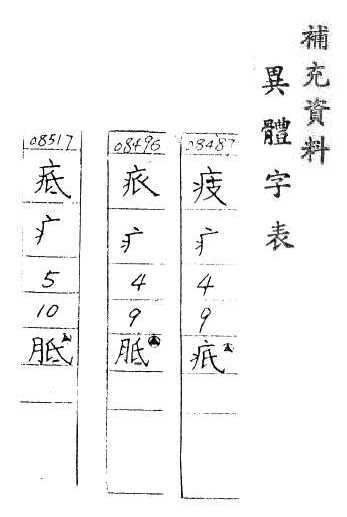 補充資料
異體字表
08487
疒
4
9
疧
08496
疒
4
9
胝
08517
疷
疒
5
10
胝